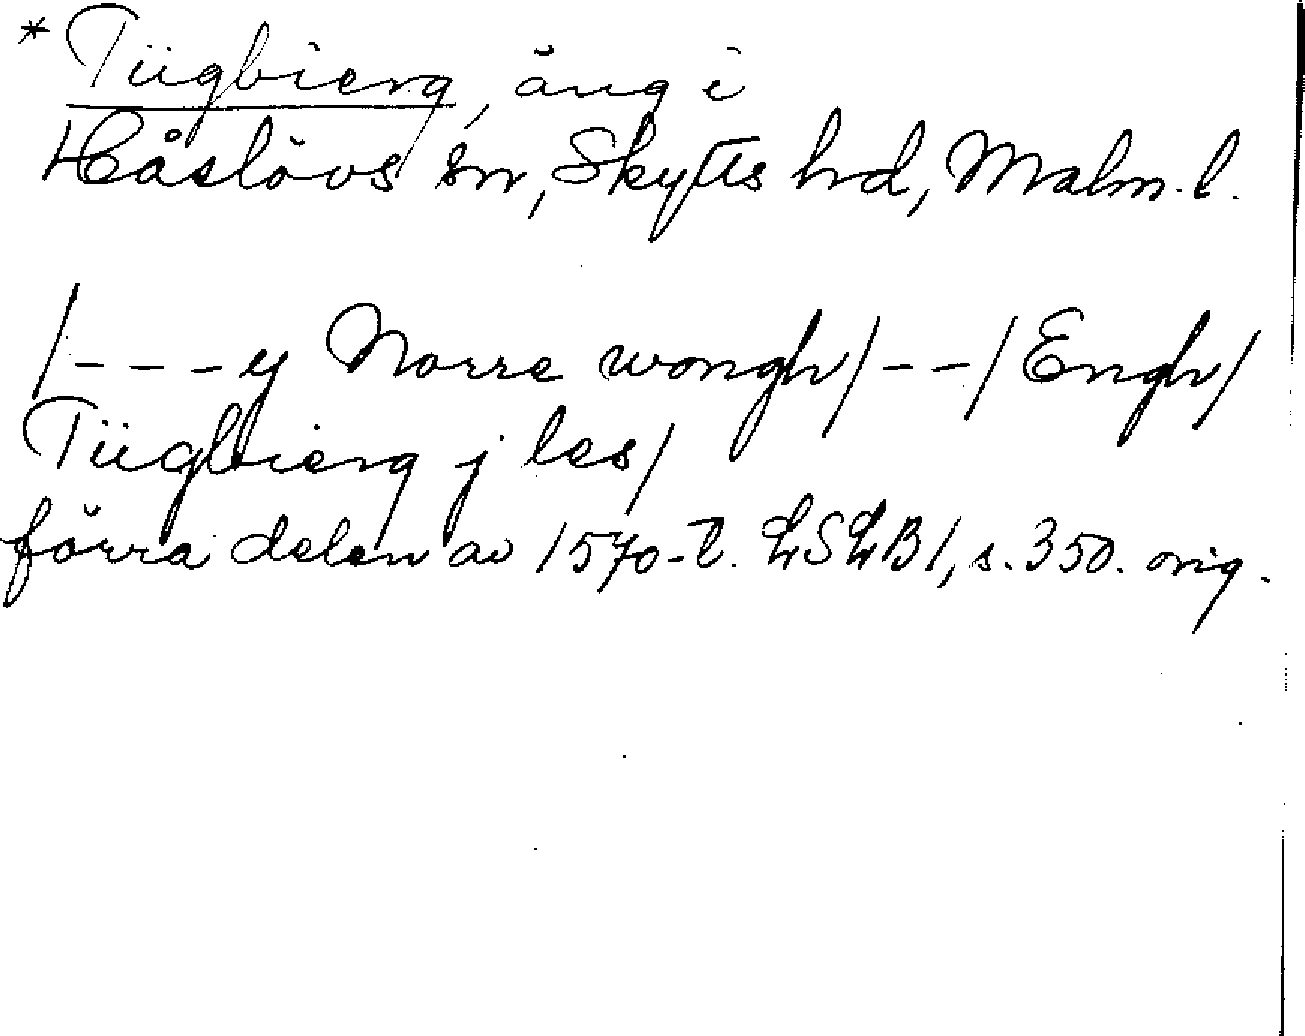 * Tügbierg, äng i
Håslövs sn, Skytts hd, Malm. l.
/- - - y Norre wongh/ - - / Engh/
Tügbierg j les/
förra delen av 1570-t. LSLB1, s. 350. orig.